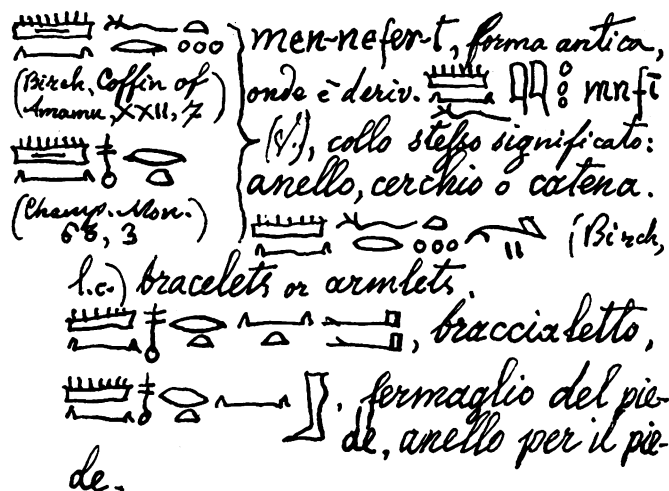 (Birch, Coffin of
Amamu, XXII, 7)
(Champ. Mon.
68, 3)
men-nefer-t, forma antica,
onde è deriv. mnfī
(V.), collo steſso significato:
anello, cerchio o catena.
(Birch,
l.c.) bracelets or armlets.
, braccialetto,
, fermaglio del pie-
de, anello per il pie-
de.